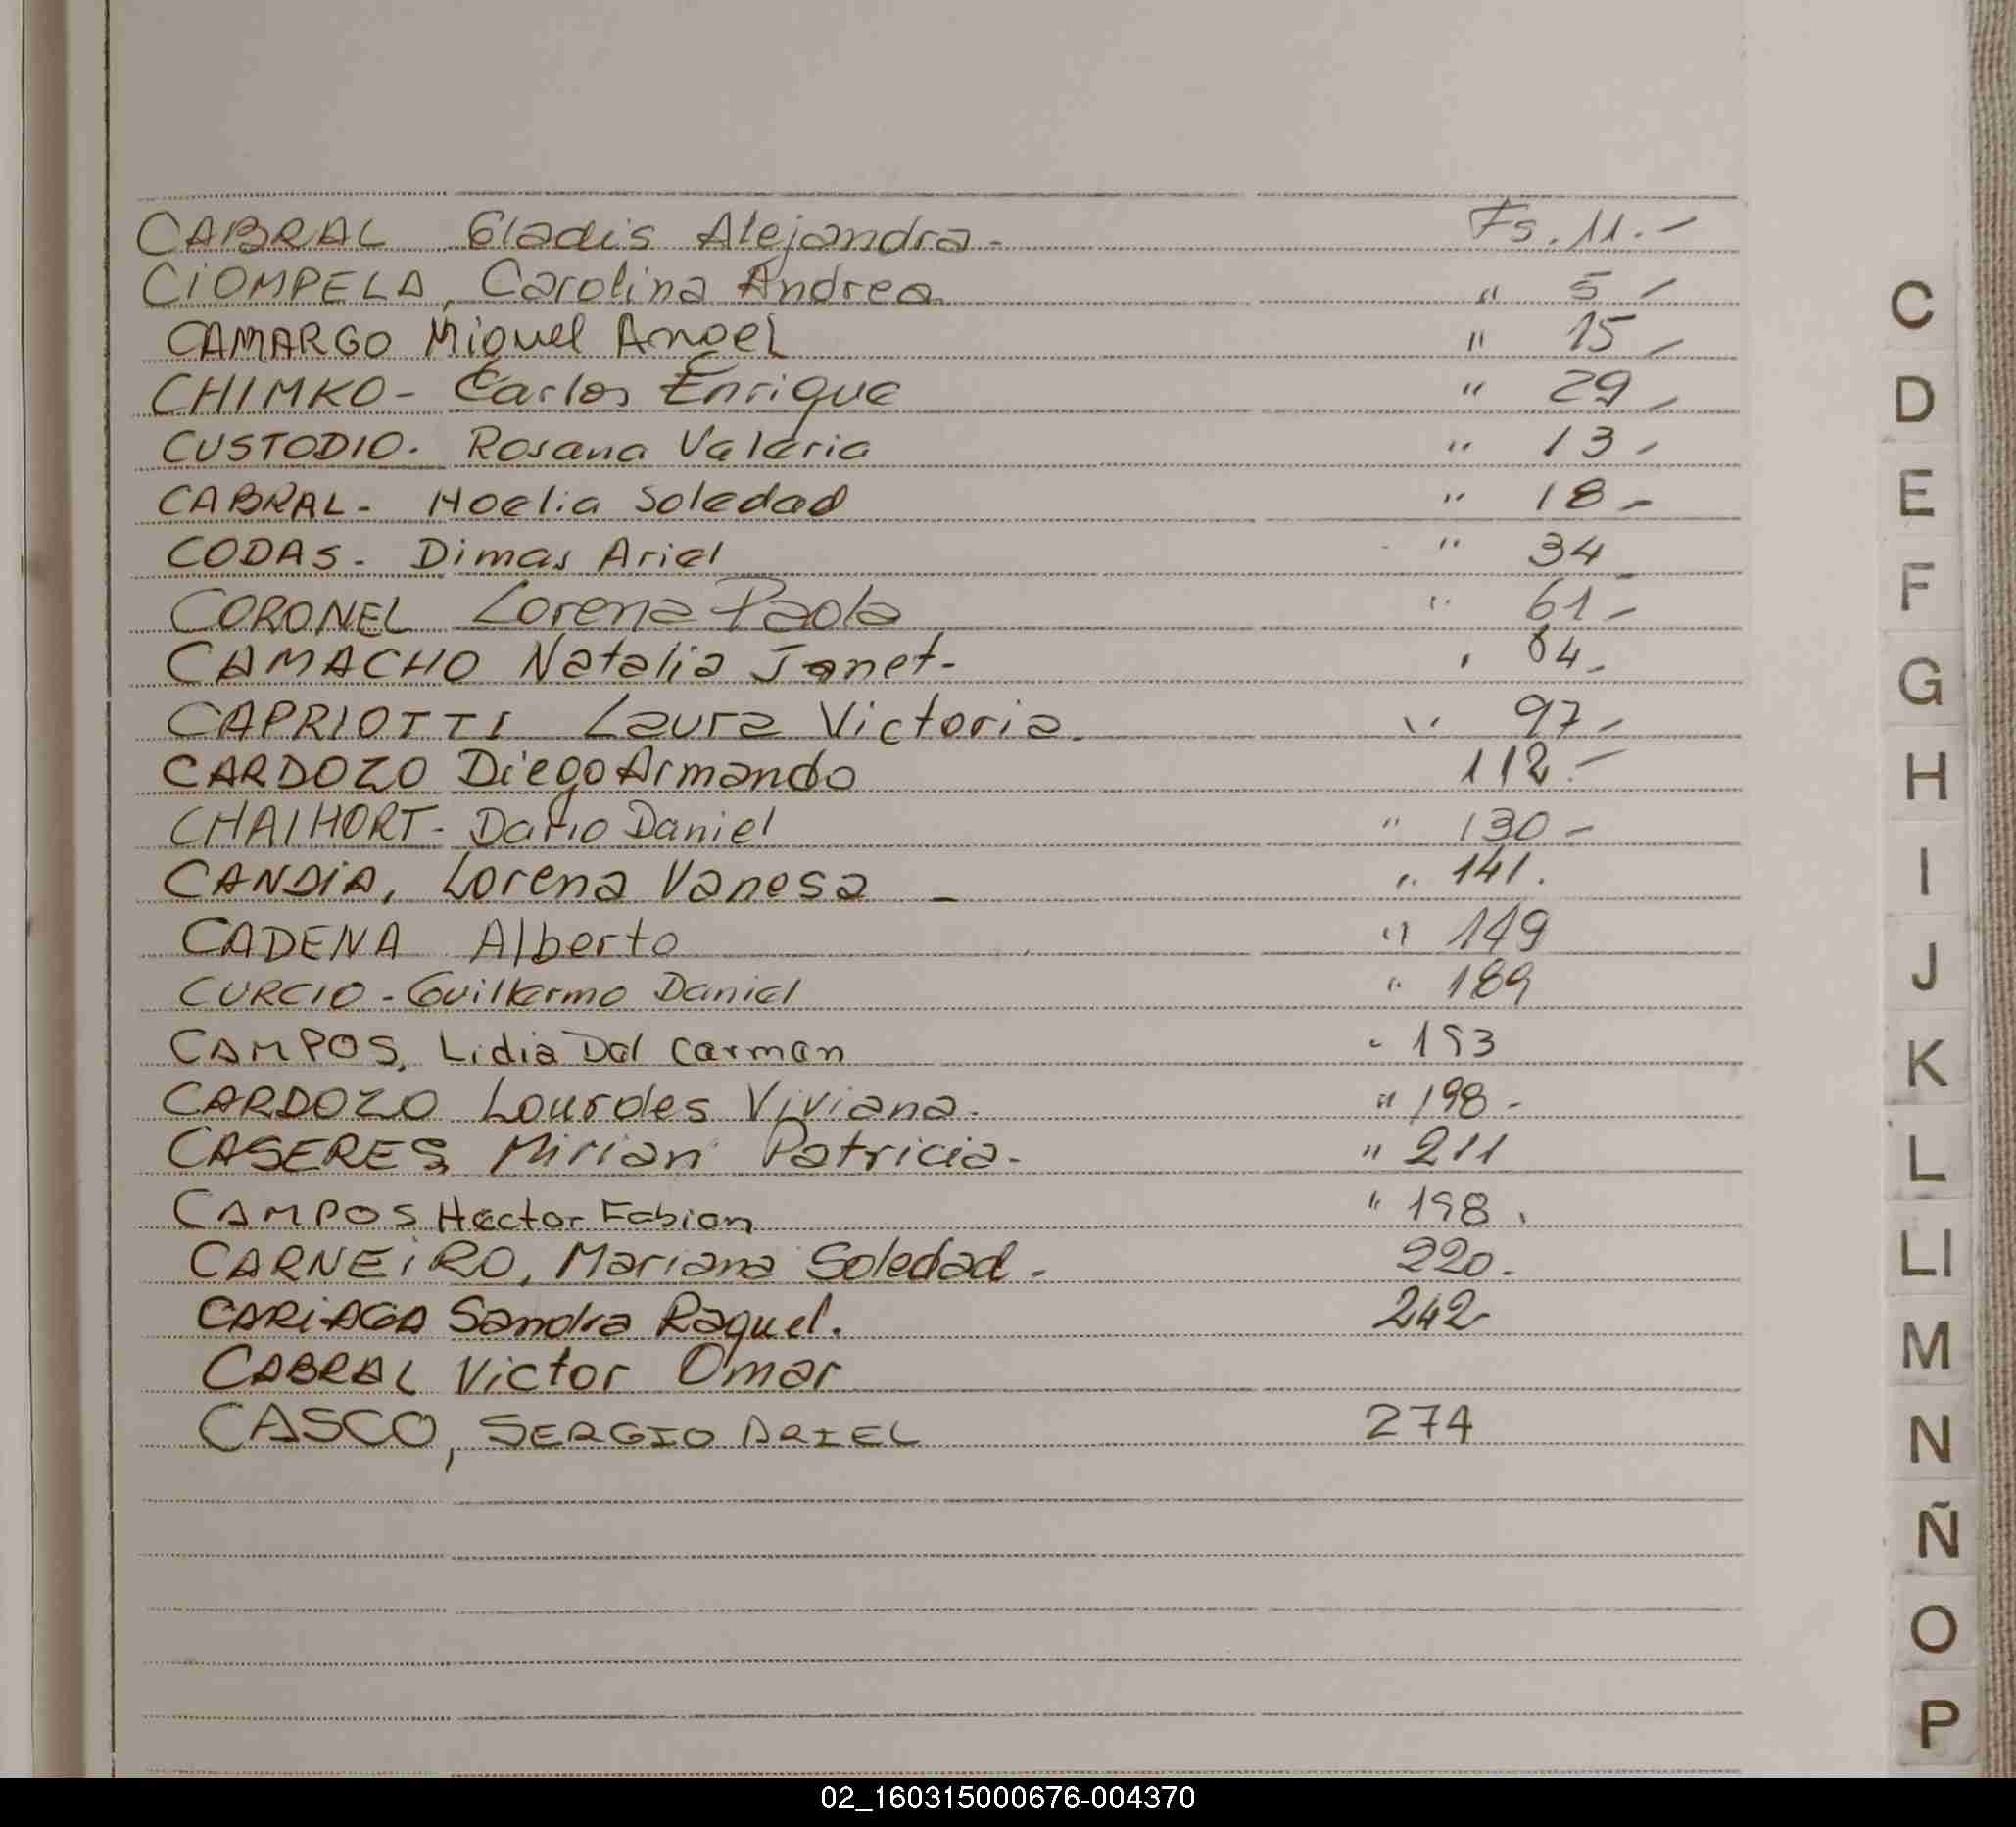 CABRAL Gladis Alejandra.- Fs. 11.-
CIOMPELA, Carolina Andrea. " 5 -
CAMARGO Miguel Angel " 15 -
CHIMKO- Carlos Enrique " 29 -
CUSTODIO. Rosana Valeria " 13 -
CABRAL- Noelia Soledad " 18 -
CODAS- Dimas Ariel " 34
CORONEL Lorena Paola " 61 -
CAMACHO Natalia Janet- " 84.-
CAPRIOTTI Laura Victoria. " 97 -
CARDOZO Diego Armando 112.-
CHAIHORT- Dario Daniel " 130 -
CANDIA, Lorena Vanesa - " 141.
CADENA Alberto " 149
CURCIO - Guillermo Daniel " 189
CAMPOS, Lidia Del Carmen " 193
CARDOZO Lourdes Viviana. " 198 -
CASERES Mirian Patricia.- " 211
CAMPOS Hector Fabian " 198.
CARNEIRO, Mariana Soledad.- 220.-
CARIAGA Sandra Raquel. 242-
CABRAL Victor Omar
CASCO, SERGIO ARIEL 274
C
D
E
F
G
H
I
J
K
L
Ll
M
N
Ñ
O
P
02_160315000676-004370